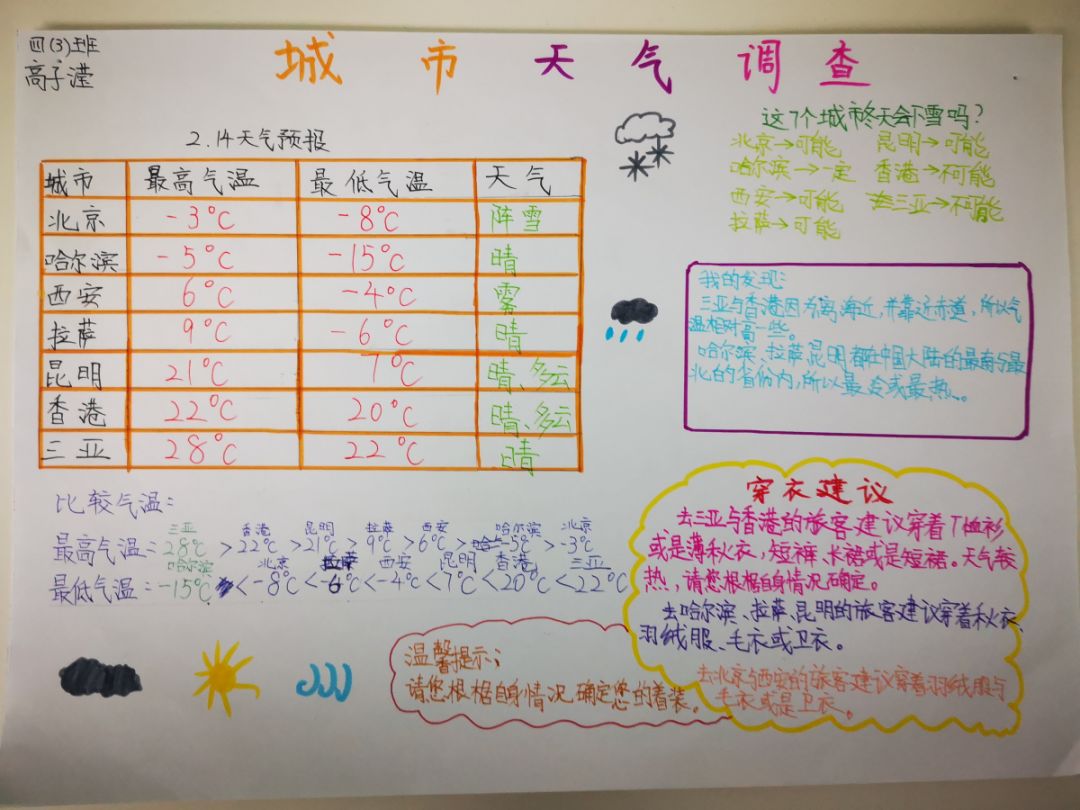 四(3)班
高子滢
城市天气调查
2.14天气预报
城市 最高气温 最低气温 天气
北京 -3℃ -8℃ 阵雪
哈尔滨 -5℃ -15℃ 晴
西安 6℃ -4℃ 雾
拉萨 9℃ -6℃ 晴
昆明 21℃ 7℃ 晴、多云
香港 22℃ 20℃ 晴、多云
三亚 28℃ 22℃ 晴
这7个城市冬天会下雪吗?
北京→可能 昆明→可能
哈尔滨→一定 香港→不可能
西安→可能 三亚→不可能
拉萨→可能
我的发现:
三亚与香港因为离海近,并靠近赤道,所以气
温相对高一些。
哈尔滨、拉萨、昆明都在中国大陆的最南与最
北的省份内,所以最冷或最热。
比较气温:
三亚 香港 昆明 拉萨 西安 哈尔滨 北京
最高气温=28℃>22℃>21℃>9℃>6℃>-5℃>-3℃
哈尔滨 北京 拉萨 西安 昆明 香港 三亚
最低气温=-15℃<-8℃<-6℃<-4℃<7℃<20℃<22℃
穿衣建议
去三亚与香港的旅客建议穿着T恤衫
或是薄秋衣,短裤、长裙或是短裙。天气较
热,请您根据自身情况确定。
去哈尔滨、拉萨、昆明的旅客建议穿着秋衣、
羽绒服、毛衣或卫衣。
去北京与西安的旅客建议穿着羽绒服与
毛衣或是卫衣。
温馨提示:
请您根据自身情况确定您的着装。